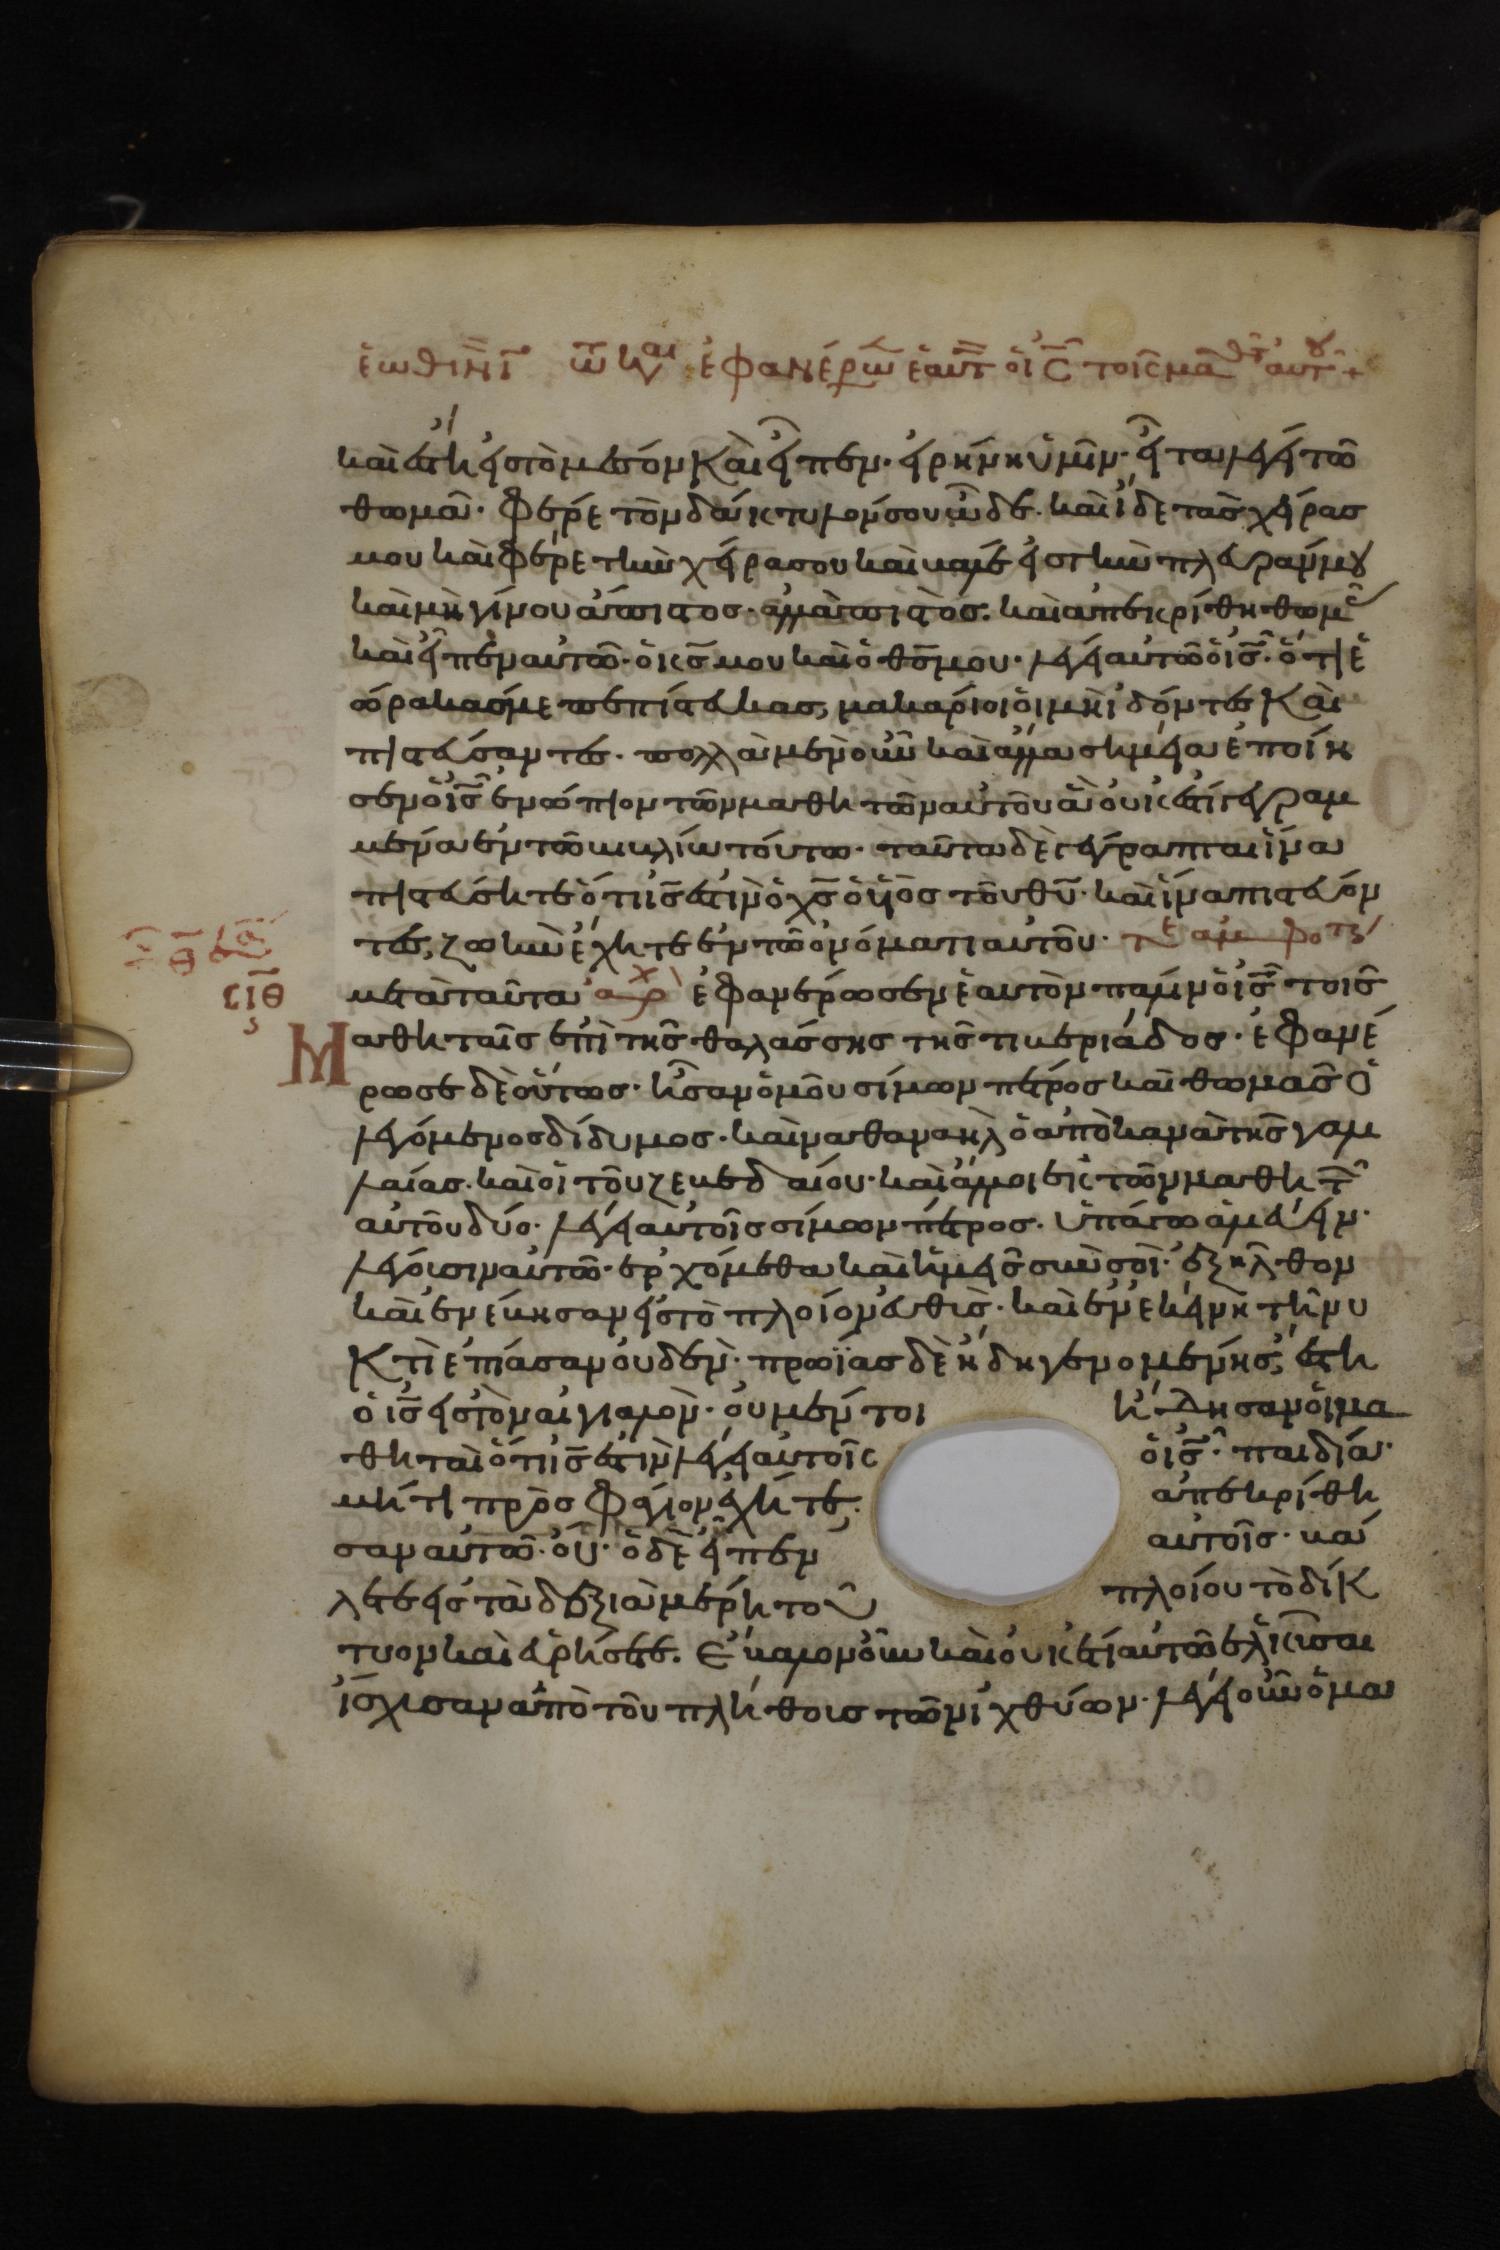 καὶ ἔστη εἰς τὸ μέσον καὶ εἶπεν· εἰρήνη ὑμῖν· εἶτα λέγει τῶ
θωμᾶ· φέρε τὸν δάκτυλόν σου ὧδε. καὶ ἴδε τὰς χεῖρας
μου καὶ φέρε τὴν χεῖρα σου καὶ βάλε εἰς τὴν πλευράν μου
καὶ μὴ γίνου ἄπιστος· ἀλλὰ πιστός. καὶ ἀπεκρίθη θωμᾶς
καὶ εἶπεν αὐτῶ· ὁ κς μου καὶ ὁ θς μου· λέγει αὐτῶ ὁ ις· ὅτι ἑ
ώρακάς με πεπίστευκας, μακάριοι οἱ μὴ ἰδόντες καὶ
πιστεύσαντες· πολλὰ μὲν οὖν καὶ ἄλλα σημεῖα ἐποίη
σεν ὁ ις ἐνώπιον τῶν μαθητῶν αὐτοῦ ἃ οὐκ ἔστι γεγραμ
μένα ἐν τῶ βιβλίω τούτω· ταῦτα δὲ γέγραπται ἵνα
πιστεύσητε ὅτι ις ἐστιν ὁ χς ὁ υἱὸς τοῦ θυ· καὶ ἵνα πιστεύον
τες, ζωὴν ἔχητε ἐν τῶ ὀνόματι αὐτοῦ·
σιθ μετὰ ταῦτα ἐφανέρωσεν ἑαυτὸν πάλιν ὁ ις τοῖς
Μαθηταῖς ἐπὶ τῆς θαλάσσης τῆς τιβεριάδος· ἐφανέ
ρωσε δὲ οὕτως· ἦσαν ὁμοῦ σίμων πέτρος καὶ θωμᾶς ὁ
λεγόμενος δίδυμος· καὶ ναθαναὴλ ὁ ἀπὸ κανὰ τῆς γαλι
λαίας. καὶ οἱ τοῦ ζεβεδαίου· καὶ ἄλλοι ἐκ τῶν μαθητ
αὐτοῦ δύο· λέγει αὐτοῖς σίμων πέτρος· ὑπάγω ἁλιεύειν·
λέγουσιν αὐτῶ· ἐρχόμεθα καὶ ἡμεῖς σὺν σοί· ἐξῆλθον
καὶ ἐνέβησαν εἰς τὸ πλοῖον εὐθὺς· καὶ ἐν ἐκείνη τῆ νυ
κτὶ ἐπίασαν οὐδέν· πρωΐας δὲ ἤδη γενομένης, ἔστη
ὁ ις εἰς τὸν αἰγιαλόν· οὐ μέν τοι ἤδησαν οἱ μα
θηταὶ ὅτι ις ἐστιν λέγει αὐτοῖς ὁ ις· παιδία·
μή τι προσφάγιον ἔχητε· ἀπεκρίθη
σαν αὐτῶ· οὔ· ὁ δὲ εἶπεν αὐτοῖς· βά
λετε εἰς τὰ δεξιὰ μέρη τοῦ πλοίου τὸ δίκ
τυον καὶ εὑρήσετε. Ἔβαλον οὖν καὶ οὐκ ἔτι αὐτῶ ἑλκῦσαι
ἴσχυσαν ἀπὸ τοῦ πλήθους τῶν ἰχθύων· λέγει οὖν ὁ μα